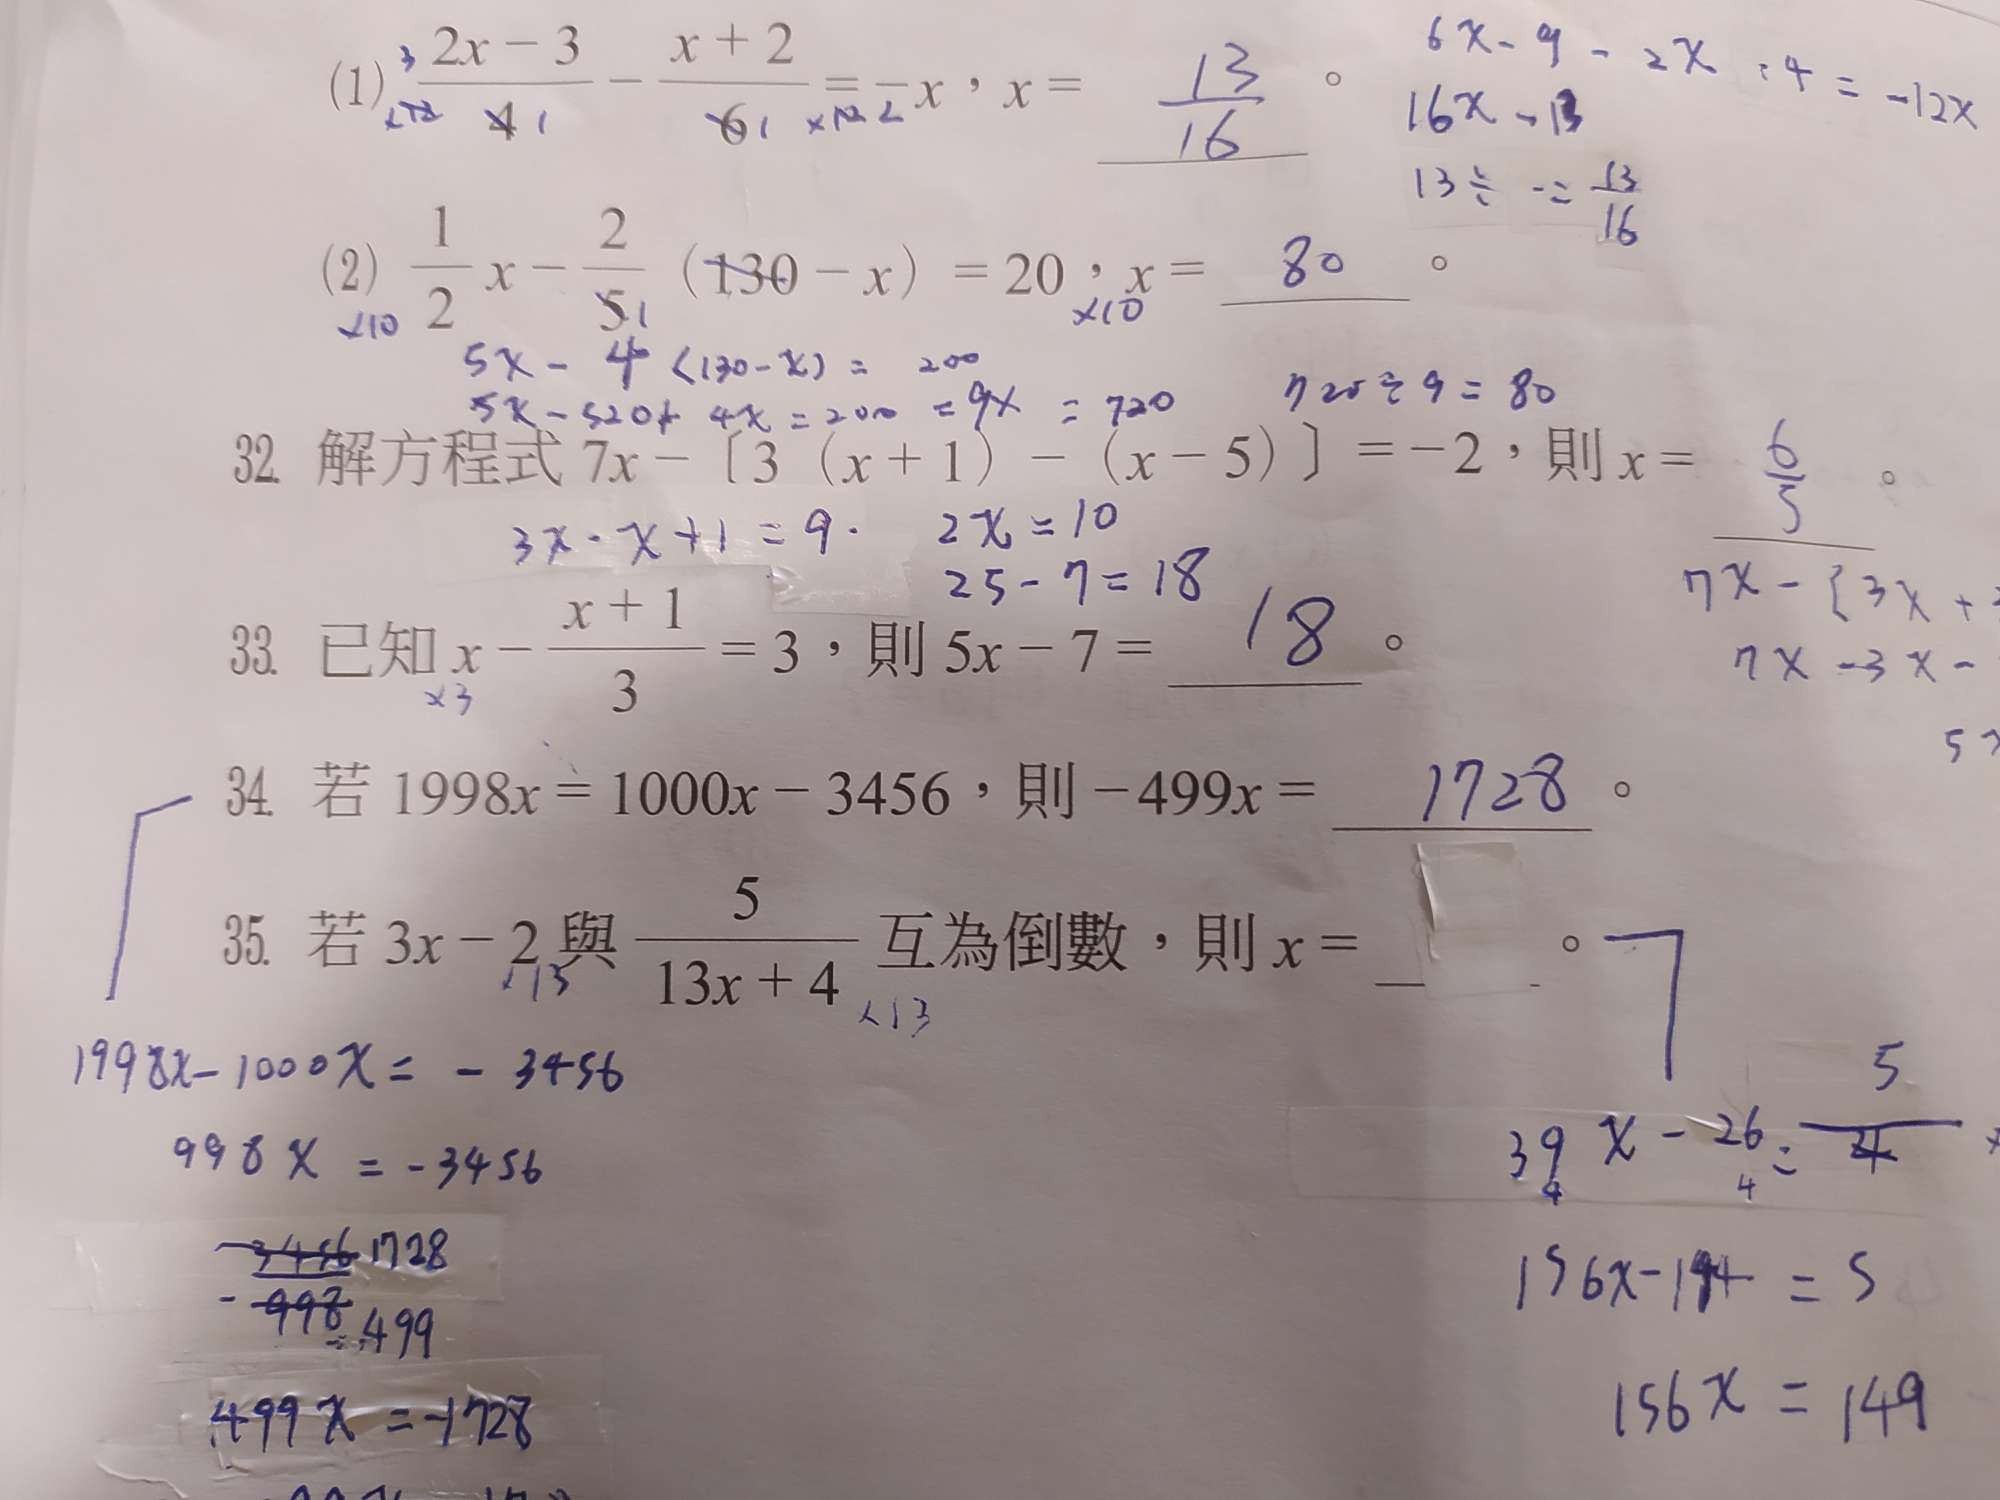 (1) 3 (2x-3)/4 - (x+2)/6 = -x，x= 13/16 。
×12 1 1 ×12
6x-9-2x-4=-12x
16x-13
13÷ -= 13/16
(2) 1/2 x - 2/5 (130-x) =20，x= 80 。
×10 1 ×10
5x-4(130-x)= 200
5x-520+4x=200 =9x =720 720÷9=80
32. 解方程式 7x-〔3(x+1)-(x-5)〕=-2，則 x= 6/5 。
3x-x+1=9. 2x=10
25-7=18
7x-{3x+
7x-3x-
33. 已知 x - (x+1)/3 =3，則 5x-7= 18 。
×3
34. 若 1998x=1000x-3456，則-499x= 1728 。
35. 若 3x-2 與 5/(13x+4) 互為倒數，則 x= 。
×13 ×13
1998x-1000x= -3456
998x =-3456
-3456 1728
-998 499
499x =-1728
39x-26= 5/4
4 4
156x-194 =5
156x =149